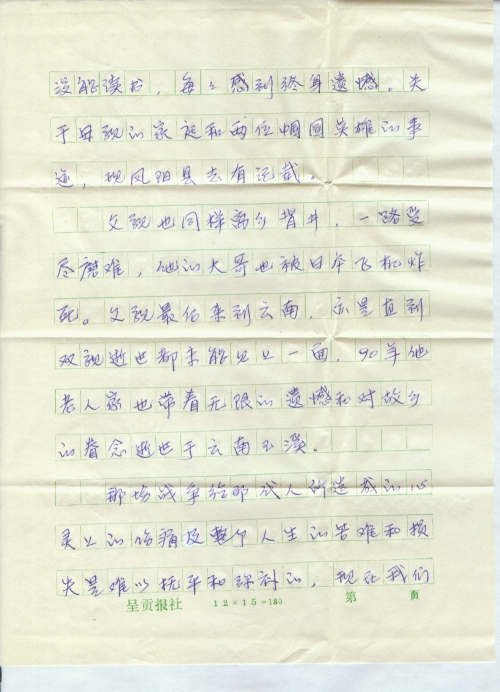 没能读书，每々感到终身遗憾。关
于母親的家庭和两位帼国英雄的事
迹，现凤阳县志有记载。
父親也同样离乡背井，一路受
尽磨难，他的大哥也被日本飞机炸
死。父親最后来到云南，亦是直到
双親逝世都未能见上一面，90年他
老人家也带着无限的遗憾和对故乡
的眷念逝世于云南玉溪。
那场战争给那代人所造成的心
灵上的伤痛及整个人生的苦难和损
失是难以抚平和弥补的，现在我们
呈贡报社 12×15=180 第 页